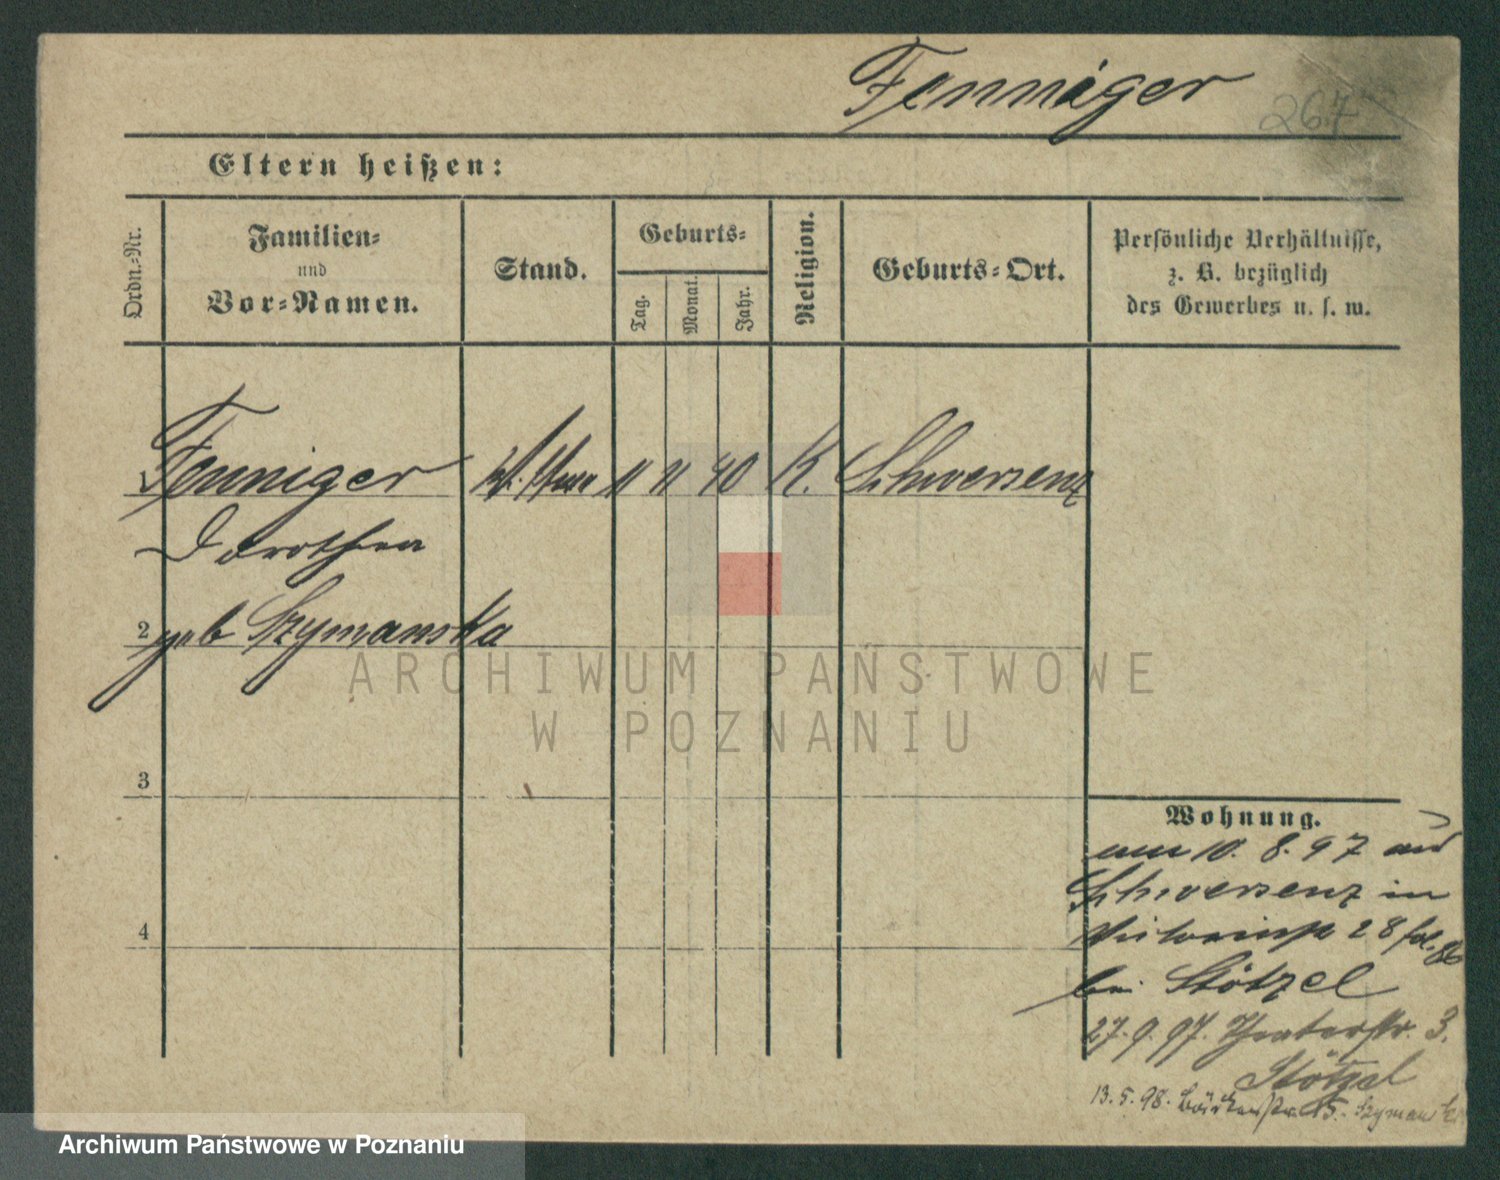 Fenniger
267
Eltern heißen:
Ordn.-Nr.
Familien-
und
Vor-Namen.
Stand.
Geburts-
Tag.
Monat.
Jahr.
Religion.
Geburts-Ort.
Persönliche Verhältnisse,
z. B. bezüglich
des Gewerbes u. s. w.
Fenniger 11 11 40 K. Schwersenz
Dorothea
2 geb Szymanska
3
4
Wohnung.
am 10. 8. 97 aus
Schwersenz in
28 fol. 86
bei Stötzel
27. 9. 97. Theaterstr. 3.
Stötzel
13. 5. 98. Bäckerstr. 15. Szymanski
ARCHIWUM PAŃSTWOWE
W POZNANIU
Archiwum Państwowe w Poznaniu